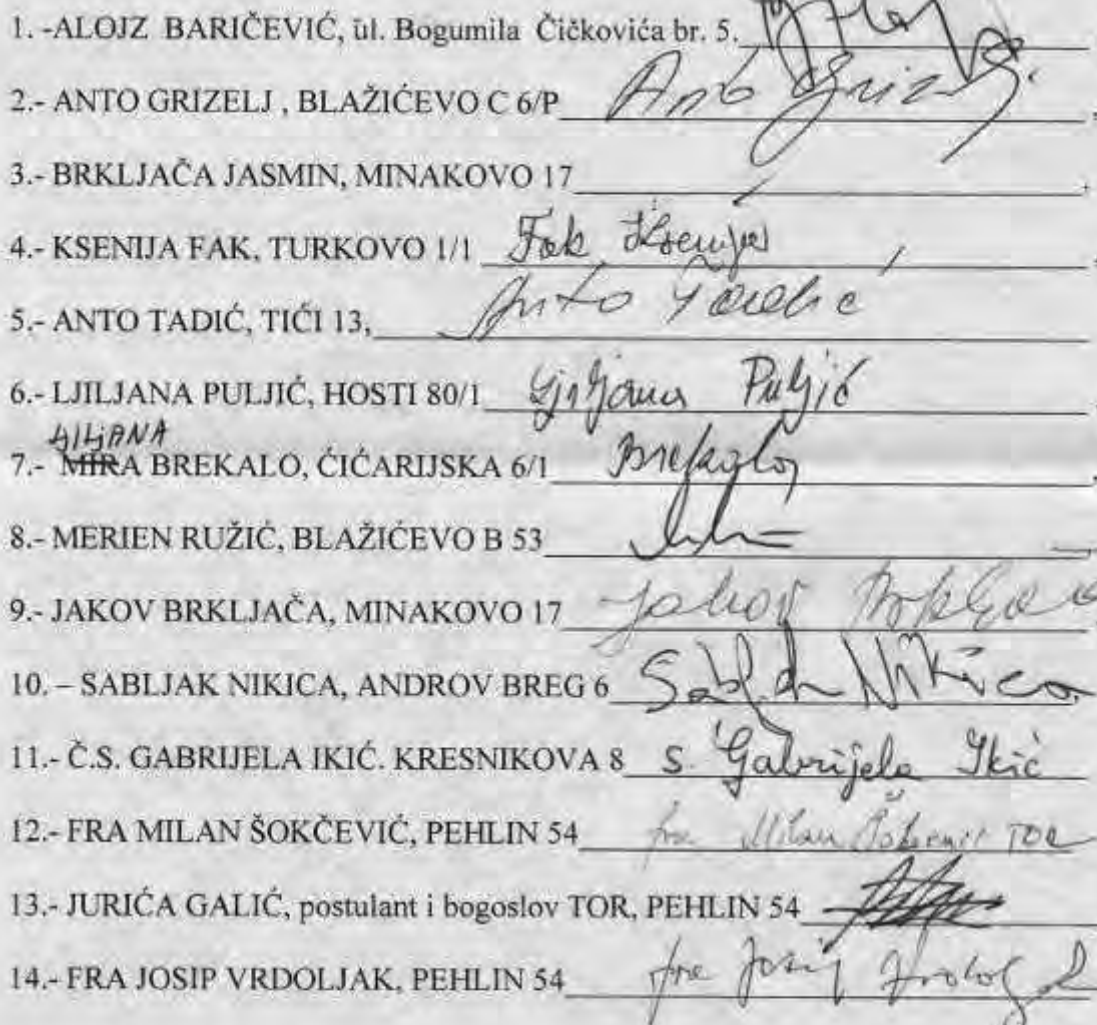 1. -ALOJZ BARIČEVIĆ, ul. Bogumila Čičkovića br. 5.
2.- ANTO GRIZELJ , BLAŽIĆEVO C 6/P Anto Grizelj
3.- BRKLJAČA JASMIN, MINAKOVO 17
4.- KSENIJA FAK, TURKOVO 1/1 Fak Ksenija
5.- ANTO TADIĆ, TIĆI 13, Anto Tadić
6.- LJILJANA PULJIĆ, HOSTI 80/1 Ljiljana Puljić
LJILJANA
7.- MIRA BREKALO, ĆIĆARIJSKA 6/1 Brekalo
8.- MERIEN RUŽIĆ, BLAŽIĆEVO B 53
9.- JAKOV BRKLJAČA, MINAKOVO 17 Jakov Brkljača
10. – SABLJAK NIKICA, ANDROV BREG 6 Sabljak Nikica
11.- Č.S. GABRIJELA IKIĆ. KRESNIKOVA 8 s. Gabrijela Ikić
12.- FRA MILAN ŠOKČEVIĆ, PEHLIN 54 fra Milan Šokčević TOR
13.- JURIĆA GALIĆ, postulant i bogoslov TOR, PEHLIN 54
14.- FRA JOSIP VRDOLJAK, PEHLIN 54 fra Josip Vrdoljak